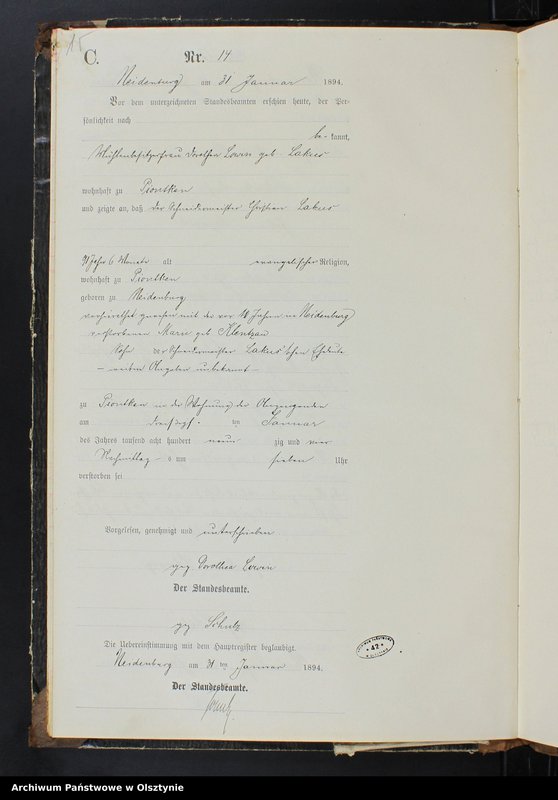 15
C.
Nr. 14
Neidenburg am 31 Januar 1894.
Vor dem unterzeichneten Standesbeamten erschien heute, der Per-
sönlichkeit nach
be- kannt,
Mühlenbesitzerfrau Dorothea geb. Lakus
wohnhaft zu Piontken
und zeigte an, daß der Schneidermeister Christian Lakus
Jahr 6 Monate alt evangelischer Religion,
wohnhaft zu Piontken
geboren zu Neidenburg
verheirathet gewesen mit der vor Jahren in Neidenburg
verstorbenen Marie geb.
Sohn der Schneidermeister Lakus'schen Eheleute
— weitere Angaben unbekannt —
zu Piontken in der Wohnung der Anzeigenden
am dreißigsten Januar
des Jahres tausend acht hundert neun zig und vier
Nachmittags um sieben Uhr
verstorben sei
Vorgelesen, genehmigt und unterschrieben
gez. Dorothea
Der Standesbeamte.
gez. Schulz
Die Uebereinstimmung mit dem Hauptregister beglaubigt.
Neidenburg am 31 ten Januar 1894.
Der Standesbeamte.
42
Archiwum Państwowe w Olsztynie